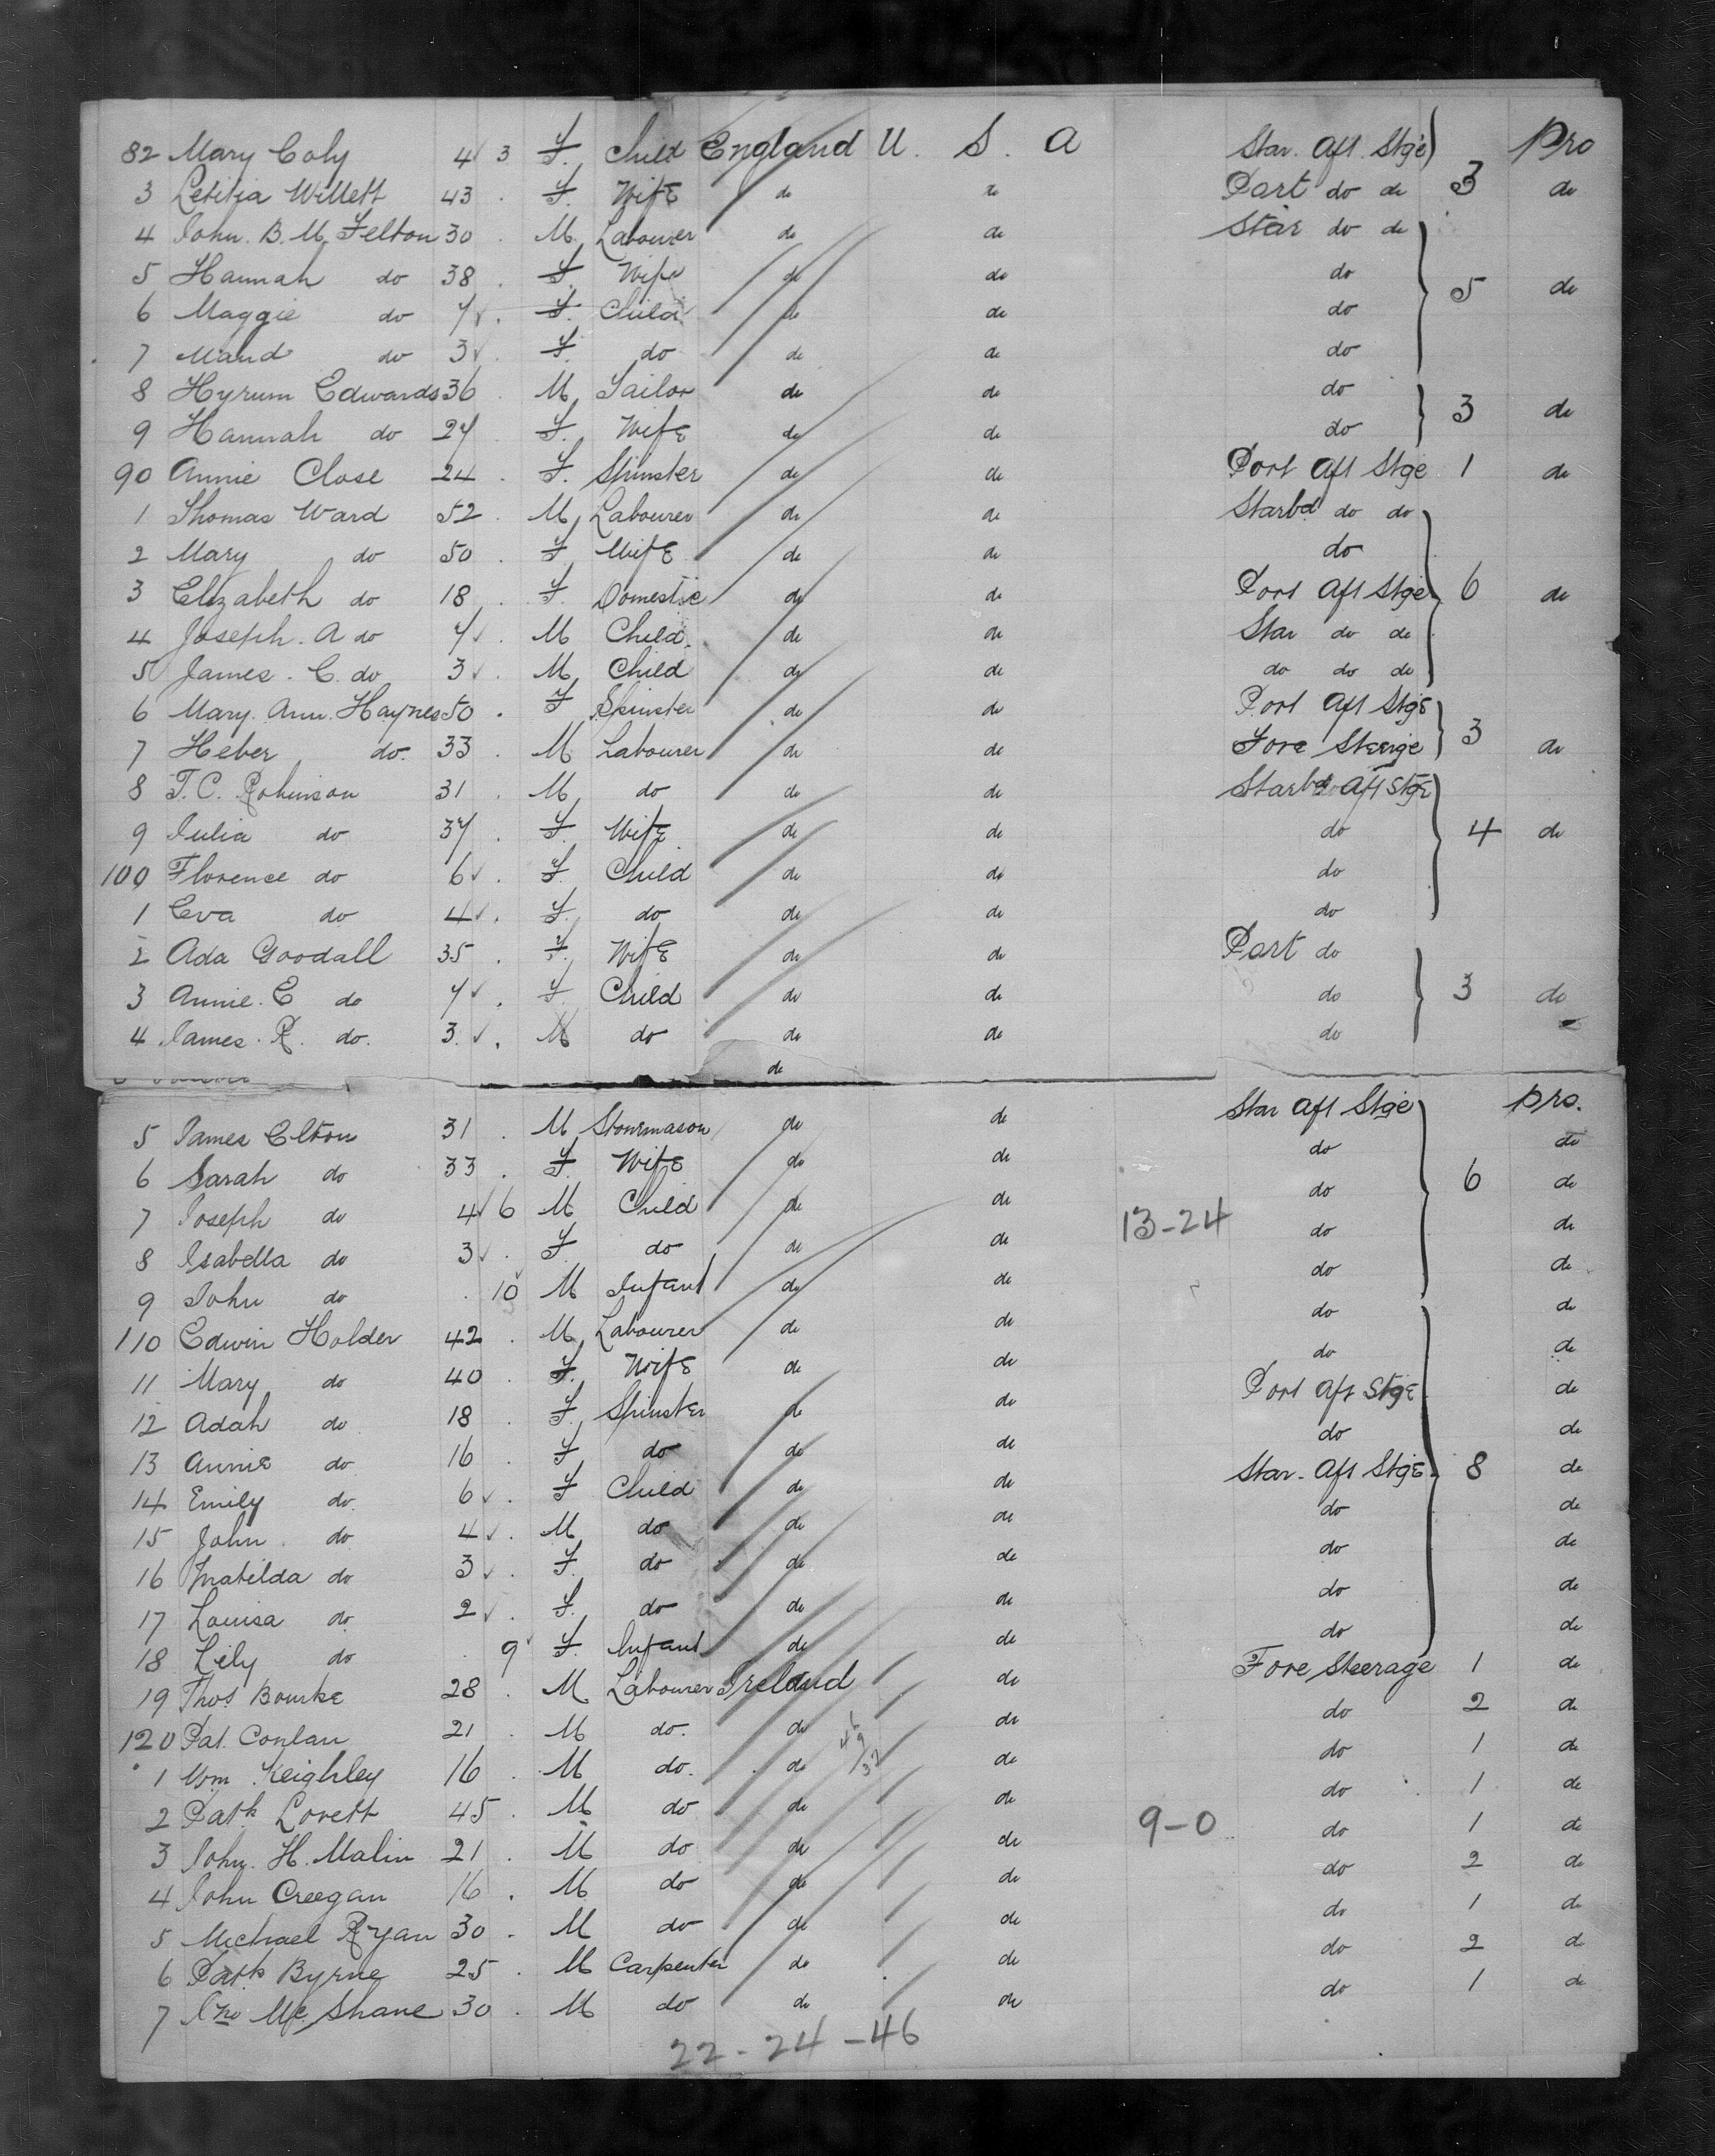 82 Mary Coly 4 3 F. Child England U. S. A Star. Aft. Stge pro
3 Letitia Willett 43 F. Wife do do Port do do 3 do
4 John. B. M. Felton 30 M. Labourer do do Star do do
5 Hannah do 38 F. Wife do do do 5 do
6 Maggie do 7 F. Child do do do
7 Maud do 3 F. do do do do
8 Hyrum Edwards 36 M. Tailor do do do
9 Hannah do 27 F. Wife do do do 3 do
90 Annie Close 24 F. Spinster do do Port Aft Stge 1 do
1 Thomas Ward 52 M. Labourer do do Starbd do do
2 Mary do 50 F. Wife do do do
3 Elizabeth do 18 F. Domestic do do Port Aft Stge 6 do
4 Joseph. A do 7 M Child do do Star do do
5 James. C. do 3 M. Child do do do do do
6 Mary. Ann. Haynes 50 F Spinster do do Port Aft Stge
7 Heber do. 33 M Labourer do do Fore Steerge 3 do
8 T. C. Robinson 31 M. do do do Starbd Aft Stge
9 Julia do 37 F. Wife do do do 4 do
100 Florence do 6 F. Child do do do
1 Eva do 4 F. do do do do
2 Ada Goodall 35 F. Wife do do Port do
3 Annie. E do 7 F. Child do do do 3 do
4 James. R. do. 3 M do do do do
do
5 James Elton 31 M Stonemason do do Star Aft Stge pro.
6 Sarah do 33 F. Wife do do do do
7 Joseph do 4 6 M Child do do do 6 do
13-24
8 Isabella do 3 F. do do do do do
9 John do 10 M Infant do do do do
110 Edwin Holder 42 M. Labourer do do do do
11 Mary do 40 F. Wife do do do do
12 Adah do 18 F. Spinster do do Port Aft Stge do
13 Annie do 16 F do do do do do
14 Emily do 6 F Child do do Star. Aft Stge 8 do
15 John. do 4 M. do do do do do
16 Matilda do 3 F. do do do do do
17 Louisa do 2 F. do do do do do
18 Lily do 9 F. Infant do do do do
19 Thos. Bourke 28 M Labourer Ireland do Fore Steerage 1 do
120 Pat. Conlan 21 M do. do do do 2 do
1 Wm Keighley 16 M do. do do do 1 do
2 Patk Lovett 45 M do do do do 1 do
9-0
3 John. H. Malin 21 M do do do do 1 do
4 John Creegan 16 M do do do do 2 do
5 Michael Ryan 30 M do do do do 1 do
6 Patk Byrne 25 M Carpenter do do do 2 do
7 Jno Mc Shane 30 M do do do do 1 do
22-24-46